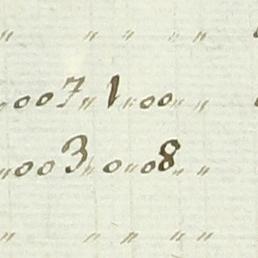 " " " " "
"007"1"00" "
"003"0"08" "
" " " " "